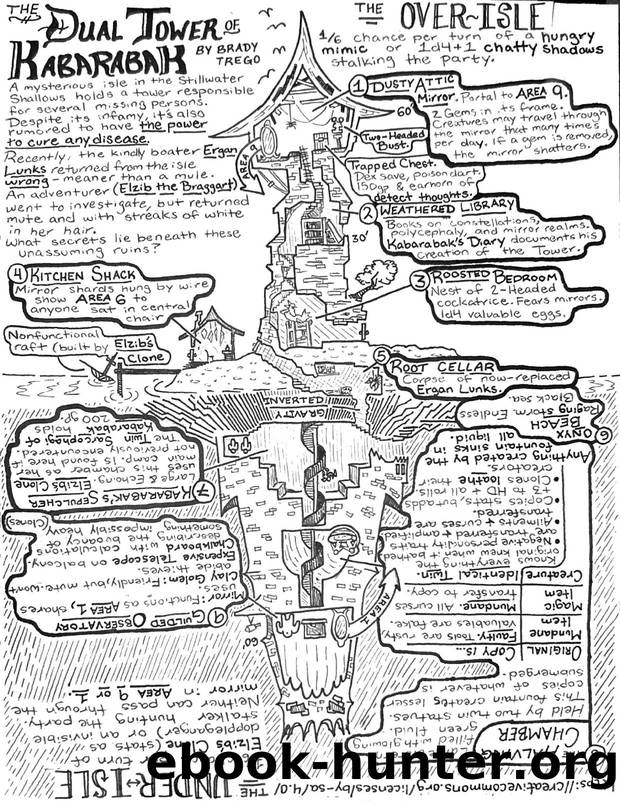 THE
DUAL TOWER OF
KABARABAK
BY BRADY
TREGO
A mysterious isle in the Stillwater
Shallows holds a tower responsible
for several missing persons.
Despite its infamy, it's also
rumored to have the power
to cure any disease.
Recently, the kindly boater Ergan
Lunks returned from the isle
wrong - meaner than a mule.
An adventurer (Elzib the Braggart)
went to investigate, but returned
mute and with streaks of white
in her hair.
What secrets lie beneath these
unassuming ruins?
THE OVER-ISLE
1/6 chance per turn of a hungry
mimic or 1d4+1 chatty shadows
stalking the party.
1 DUSTY ATTIC
Mirror. Portal to AREA 9.
2 Gems in its frame.
Creatures may travel through
the mirror that many times
per day. If a gem is removed,
the mirror shatters.
60'
Two-Headed
Bust.
AREA 9
Trapped Chest.
Dex save, poison dart.
50gp & earhorn of
detect thoughts.
2 WEATHERED LIBRARY
Books on constellations,
polycephaly, and mirror realms.
Kabarabak's Diary documents his
creation of the Tower.
30'
3 ROOSTED BEDROOM
Nest of 2-Headed
cockatrice. Fears mirrors.
1d4 valuable eggs.
4 KITCHEN SHACK
Mirror shards hung by wire
show AREA 6 to
anyone sat in central
chair
Nonfunctional
raft (built by Elzib's
Clone
5 ROOT CELLAR
Corpse of now-replaced
Ergan Lunks.
INVERTED
GRAVITY
6 ONYX
BEACH
Raging storm. Endless
Black sea.
7 KABARABAK'S SEPULCHER
Large & Echoing. Elzib's Clone
uses this chamber as her
main camp. Is found here if
not previously encountered.
The Twin Sarcophagi of
Kabarabak holds
THE HALVING
CHAMBER
filled with glowing
green fluid
Held by twin statues.
This fountain creates lesser
copies of whatever is
submerged.
ORIGINAL
COPY IS...
Mundane
Item
Faulty. Tools are rusty,
valuables are fake.
Magic
Item
Mundane. All curses
transfer to copy.
Creature
Identical Twin.
Knows everything the
original knew when it bathed
Negative personality traits,
ailments & curses
are transferred & amplified
Copies stats, but adds
+3 to HD & all rolls
Clones loathe their
creators.
Anything created by the
fountain sinks in
all liquid.
9 GUILDED OBSERVATORY
Mirror: Functions as AREA 1, shares
uses.
Clay Golem: Friendly, but mute. Won't
abide thieves.
Expensive Telescope on balcony.
Chalkboard with calculations
describing the buoyancy of
something impossibly heavy
(clones)
AREA 1
60'
THE UNDER-ISLE
turn of
Elzib's Clone (stats as
doppleganger) or an invisible
stalker hunting the party.
Neither can pass through the
mirror in AREA 9 or 1.
ebook-hunter.org